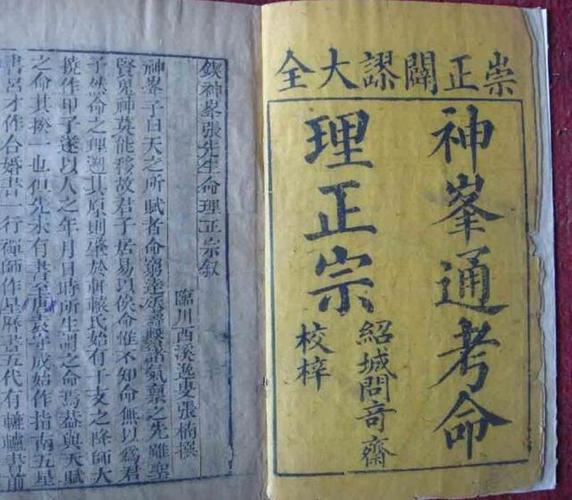 崇正闢謬大全
神峯通考命
理正宗
紹城問竒齋
校梓
鋟神峯張先生命理正宗叙
臨川西溪逸叟張楠撰
神峯子曰天之所賦者命窮達夭壽繫諸氣稟之先雖聖
賢鬼神莫能移故君子居易以俟命惟不知命無以為君
子然命之理遡其原則肇於軒轅氏始有干支之降師大
撓作甲子遂以人之年月日時所生謂之命焉葢與天賦
之命其揆一也但先未有書至唐袁守成始作指南五星
書呂才作合婚書一行禪師作星曆書五代有轆轤書前